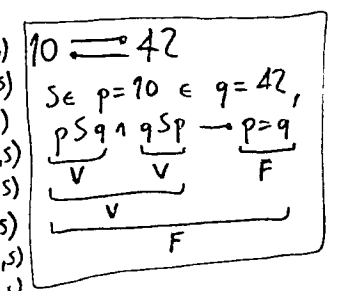 10 ⇄ 42
SE p=10 E q=42,
pSq ∧ qSp → p=q
V V F
V
F